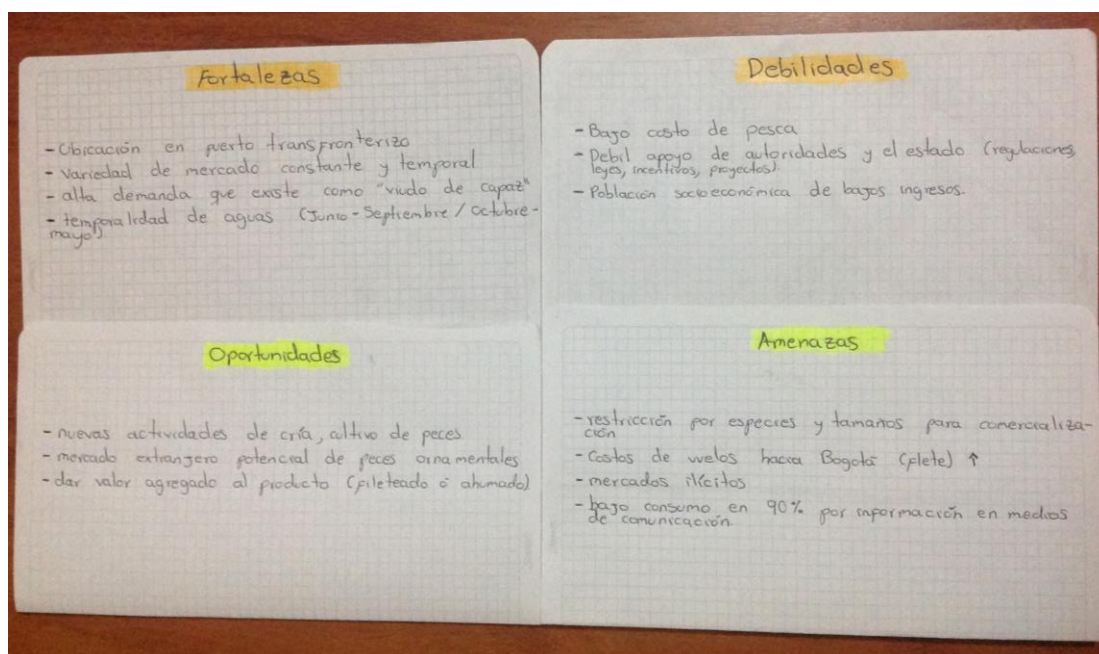 Fortalezas
- Ubicación en puerto transfronterizo
- variedad de mercado constante y temporal
- alta demanda que existe como "viudo de capaz"
- temporalidad de aguas (Junio - Septiembre / octubre -
mayo)
Debilidades
- Bajo costo de pesca
- Debil apoyo de autoridades y el estado (regulaciones,
leyes, incentivos, proyectos)
- Población socioeconómica de bajos ingresos.
Oportunidades
- nuevas actividades de cría, cultivo de peces
- mercado extranjero potencial de peces ornamentales
- dar valor agregado al producto (fileteado ó ahumado)
Amenazas
- restricción por especies y tamaños para comercializa-
ción
- Costos de vuelos hacia Bogotá (flete) ↑
- mercados ilícitos
- bajo consumo en 90% por información en medios
de comunicación.